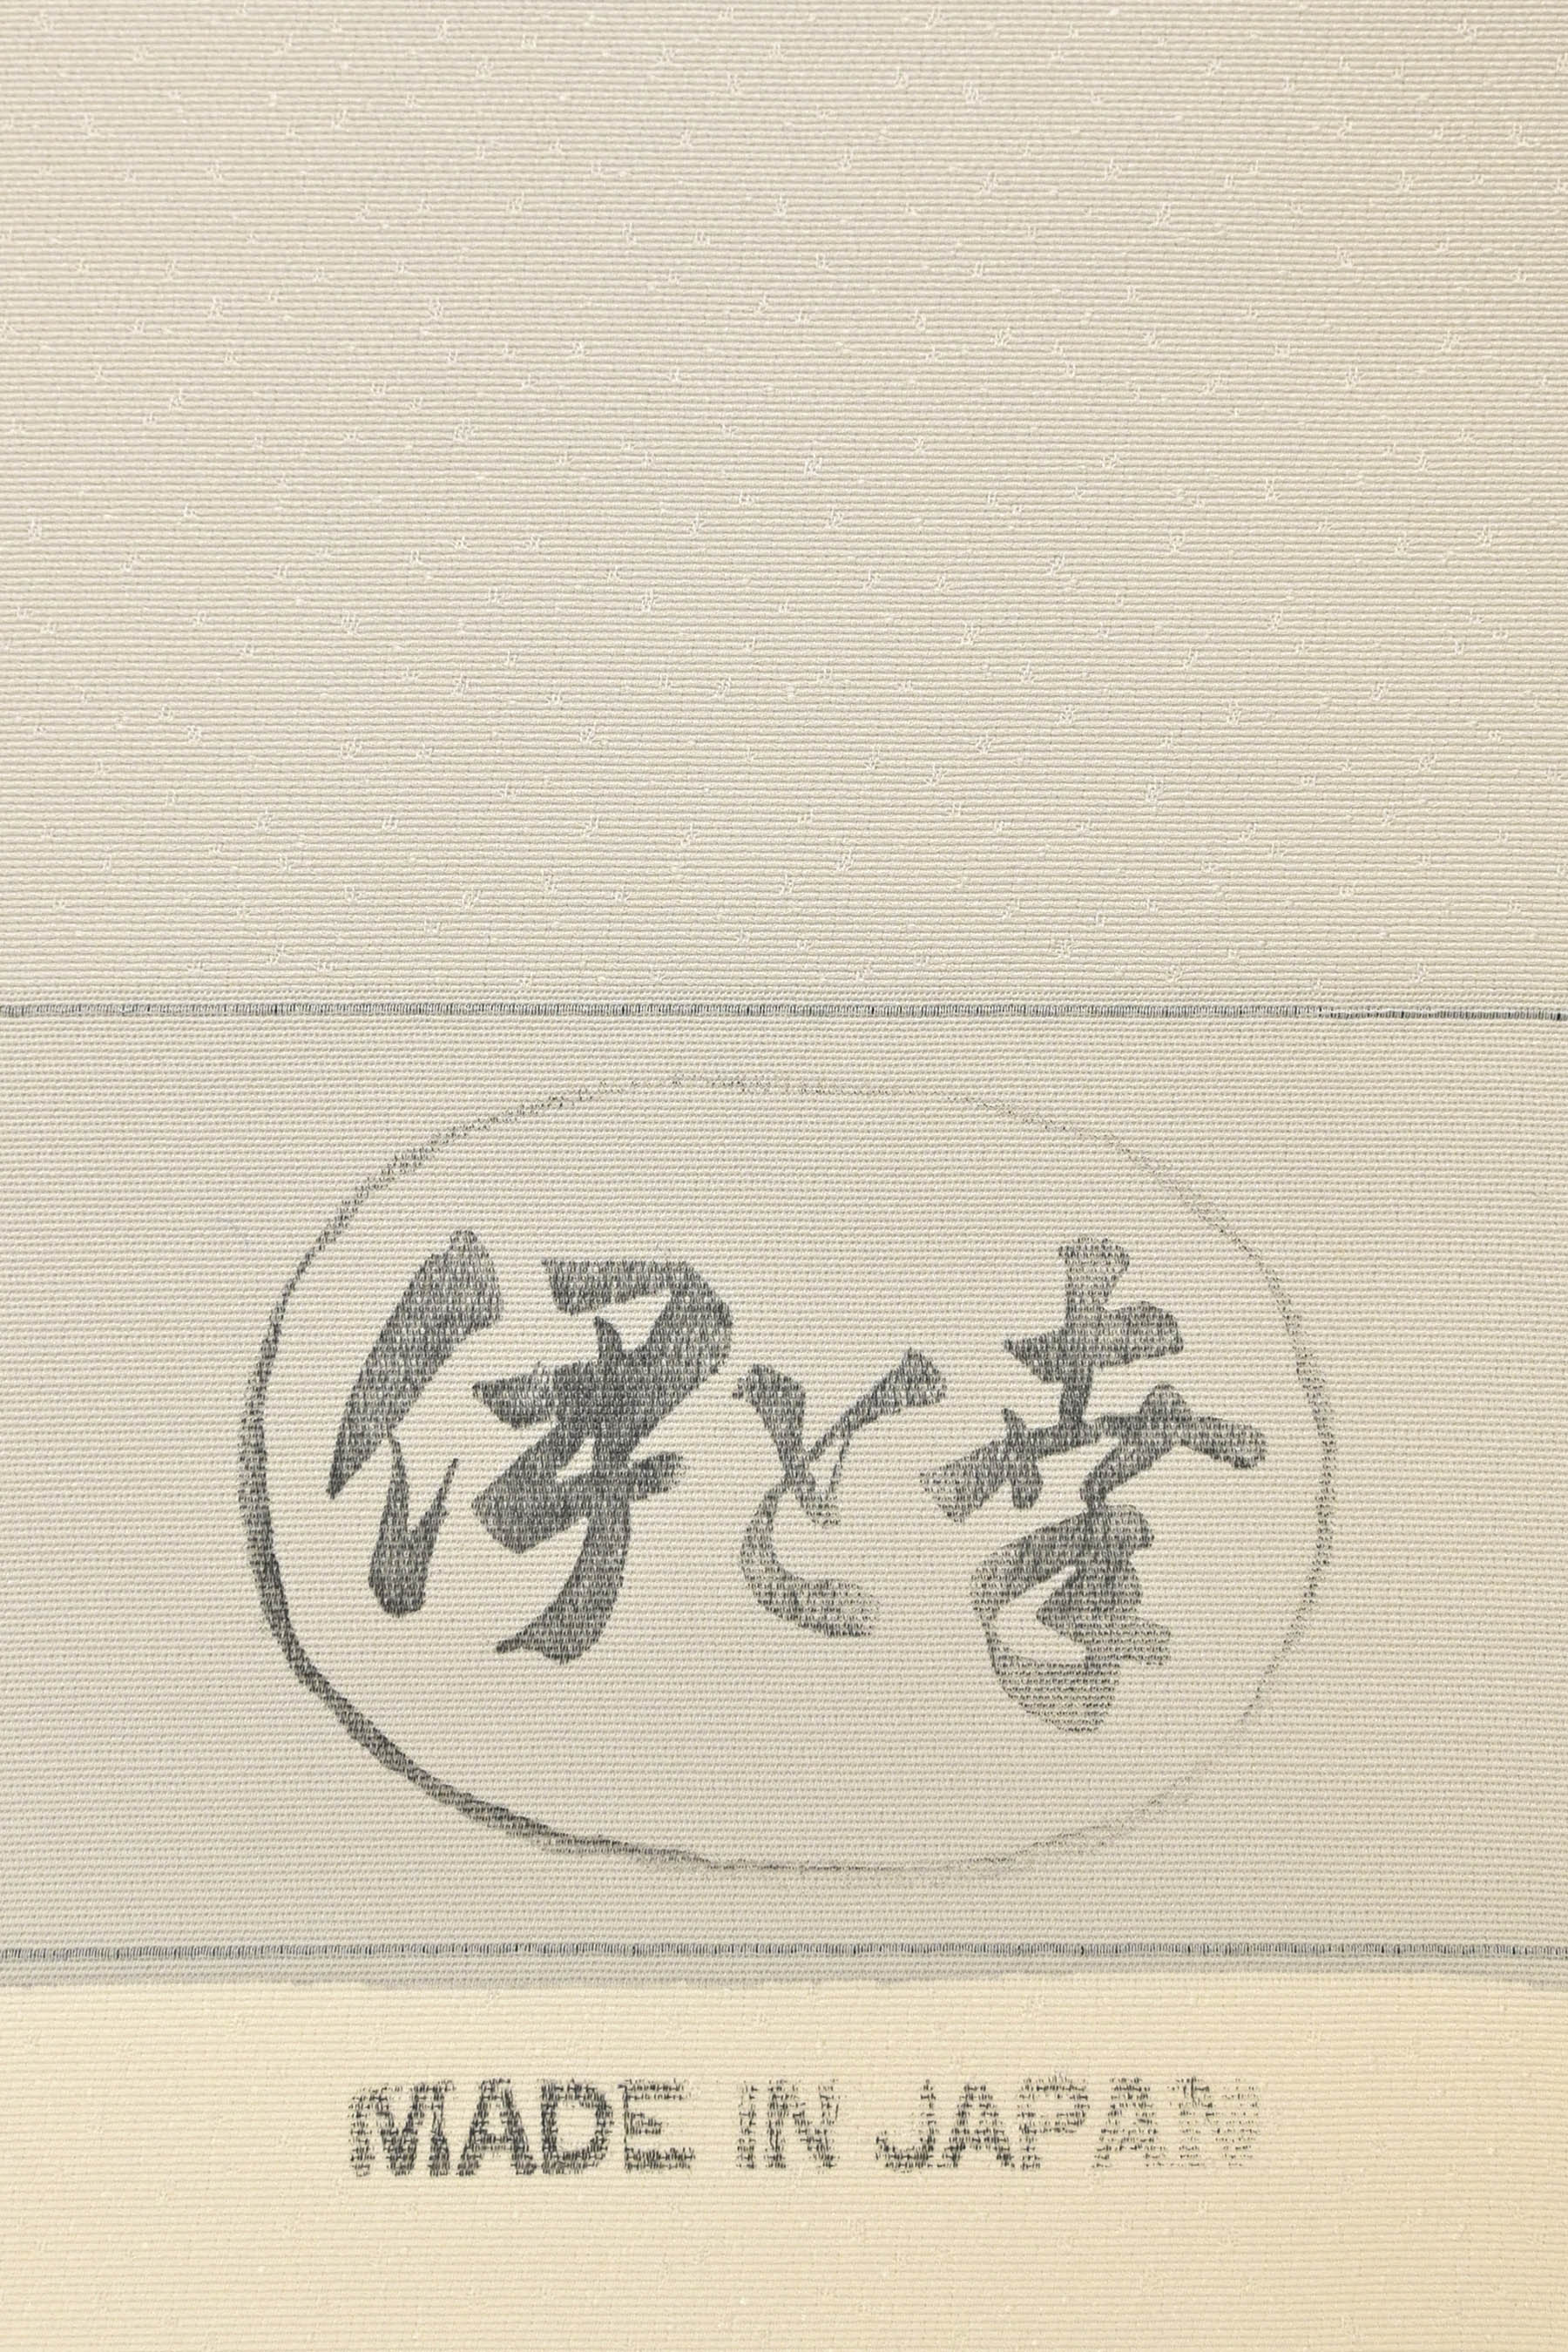 伊と幸
MADE IN JAPAN